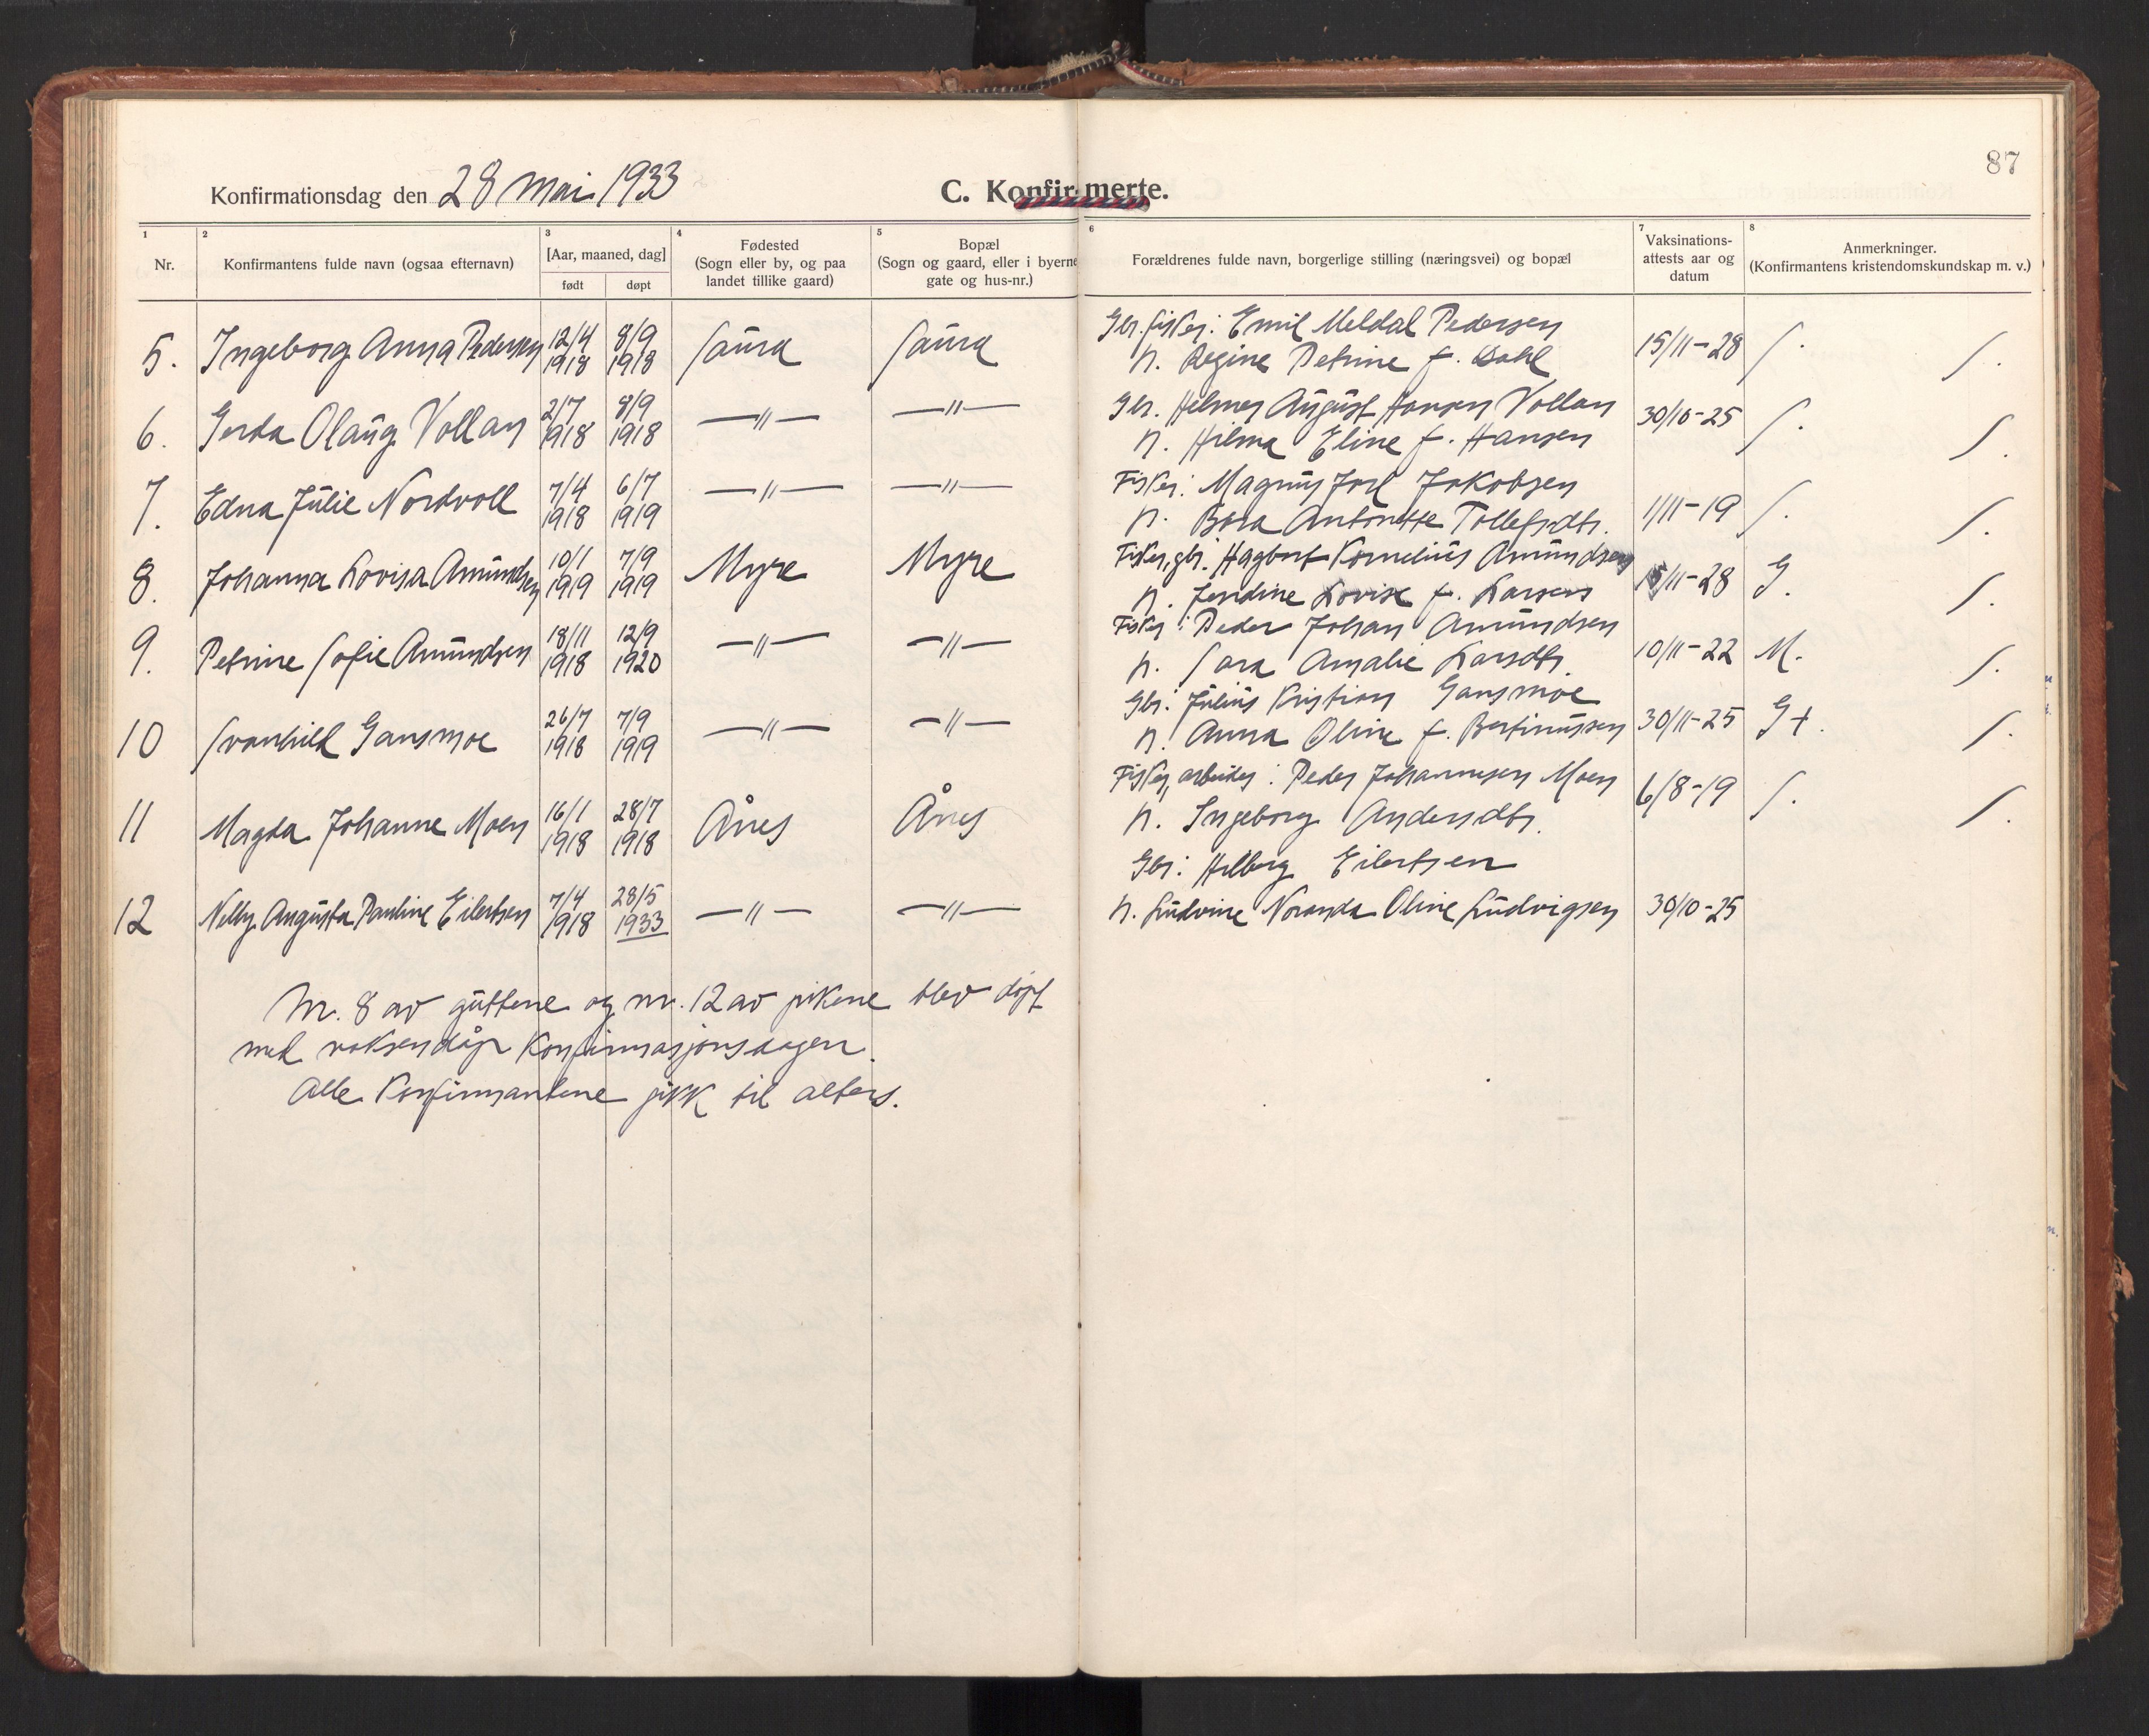 87
Konfirmationsdag den 28 mai 1933
C. Konfirmerte.
1 2 3 4 5 6 7 8
Nr.
Konfirmantens fulde navn (ogsaa efternavn)
[Aar, maaned, dag]
født døpt
Fødested
(Sogn eller by, og paa
landet tillike gaard)
Bopæl
(Sogn og gaard, eller i byerne
gate og hus-nr.)
Forældrenes fulde navn, borgerlige stilling (næringsvei) og bopæl
Vaksinations-
attests aar og
datum
Anmerkninger.
(Konfirmantens kristendomskundskap m. v.)
Gbr. fisker: Emil Meldal Pedersen
5. Ingeborg Anna Pedersen 12/4 1918 8/9 1918 Saura Saura h. Regine Petrine f. Dahl 15/11-28 S. S.
Gbr. Helmer August Hansen Vollan
6. Gerda Olaug Vollan 2/7 1918 8/9 1918 —"— —"— h. Hilma Eline f. Hansen 30/10-25 S. S.
Fisker: Magnus Joel Jakobsen
7. Edna Julie Nordvoll 7/4 1918 6/7 1919 —"— —"— h. Bora Antonette Tollefsdtr. 1/11-19 S. S.
Fisker, gbr. Hagbart Kornelius Amundsen
8. Johanna Lovisa Amundsen 10/1 1919 7/9 1919 Myre Myre h. Jendine Lovise f. Larsen 15/11-28 G. S.
Fisker: Peder Johan Amundsen
9. Petrine Sofie Amundsen 18/11 1918 12/9 1920 —"— —"— h. Sara Amalie Larsdtr. 10/11-22 M. S.
Gbr: Julius Kristian Gansmoe
10 Svanhild Gansmoe 26/7 1918 7/9 1919 —"— —"— h. Anna Oline f. Bertinussen 30/11-25 G+. S.
Fisker, arbeider: Peder Johannesen Moen
11 Magda Johanne Moen 16/1 1918 28/7 1918 Ånes Ånes h. Ingeborg Andersdtr. 6/8-19 S. S.
Gbr: Hilberg Eilertsen
12 Nelly Augusta Pauline Eilertsen 7/4 1918 28/5 1933 —"— —"— h. Ludvine Noranda Oline Ludvigsen 30/10-25
Nr. 8 av guttene og nr. 12 av pikene blev døpt
med voksendåp konfirmasjonsdagen.
Alle konfirmantene gikk til alters.